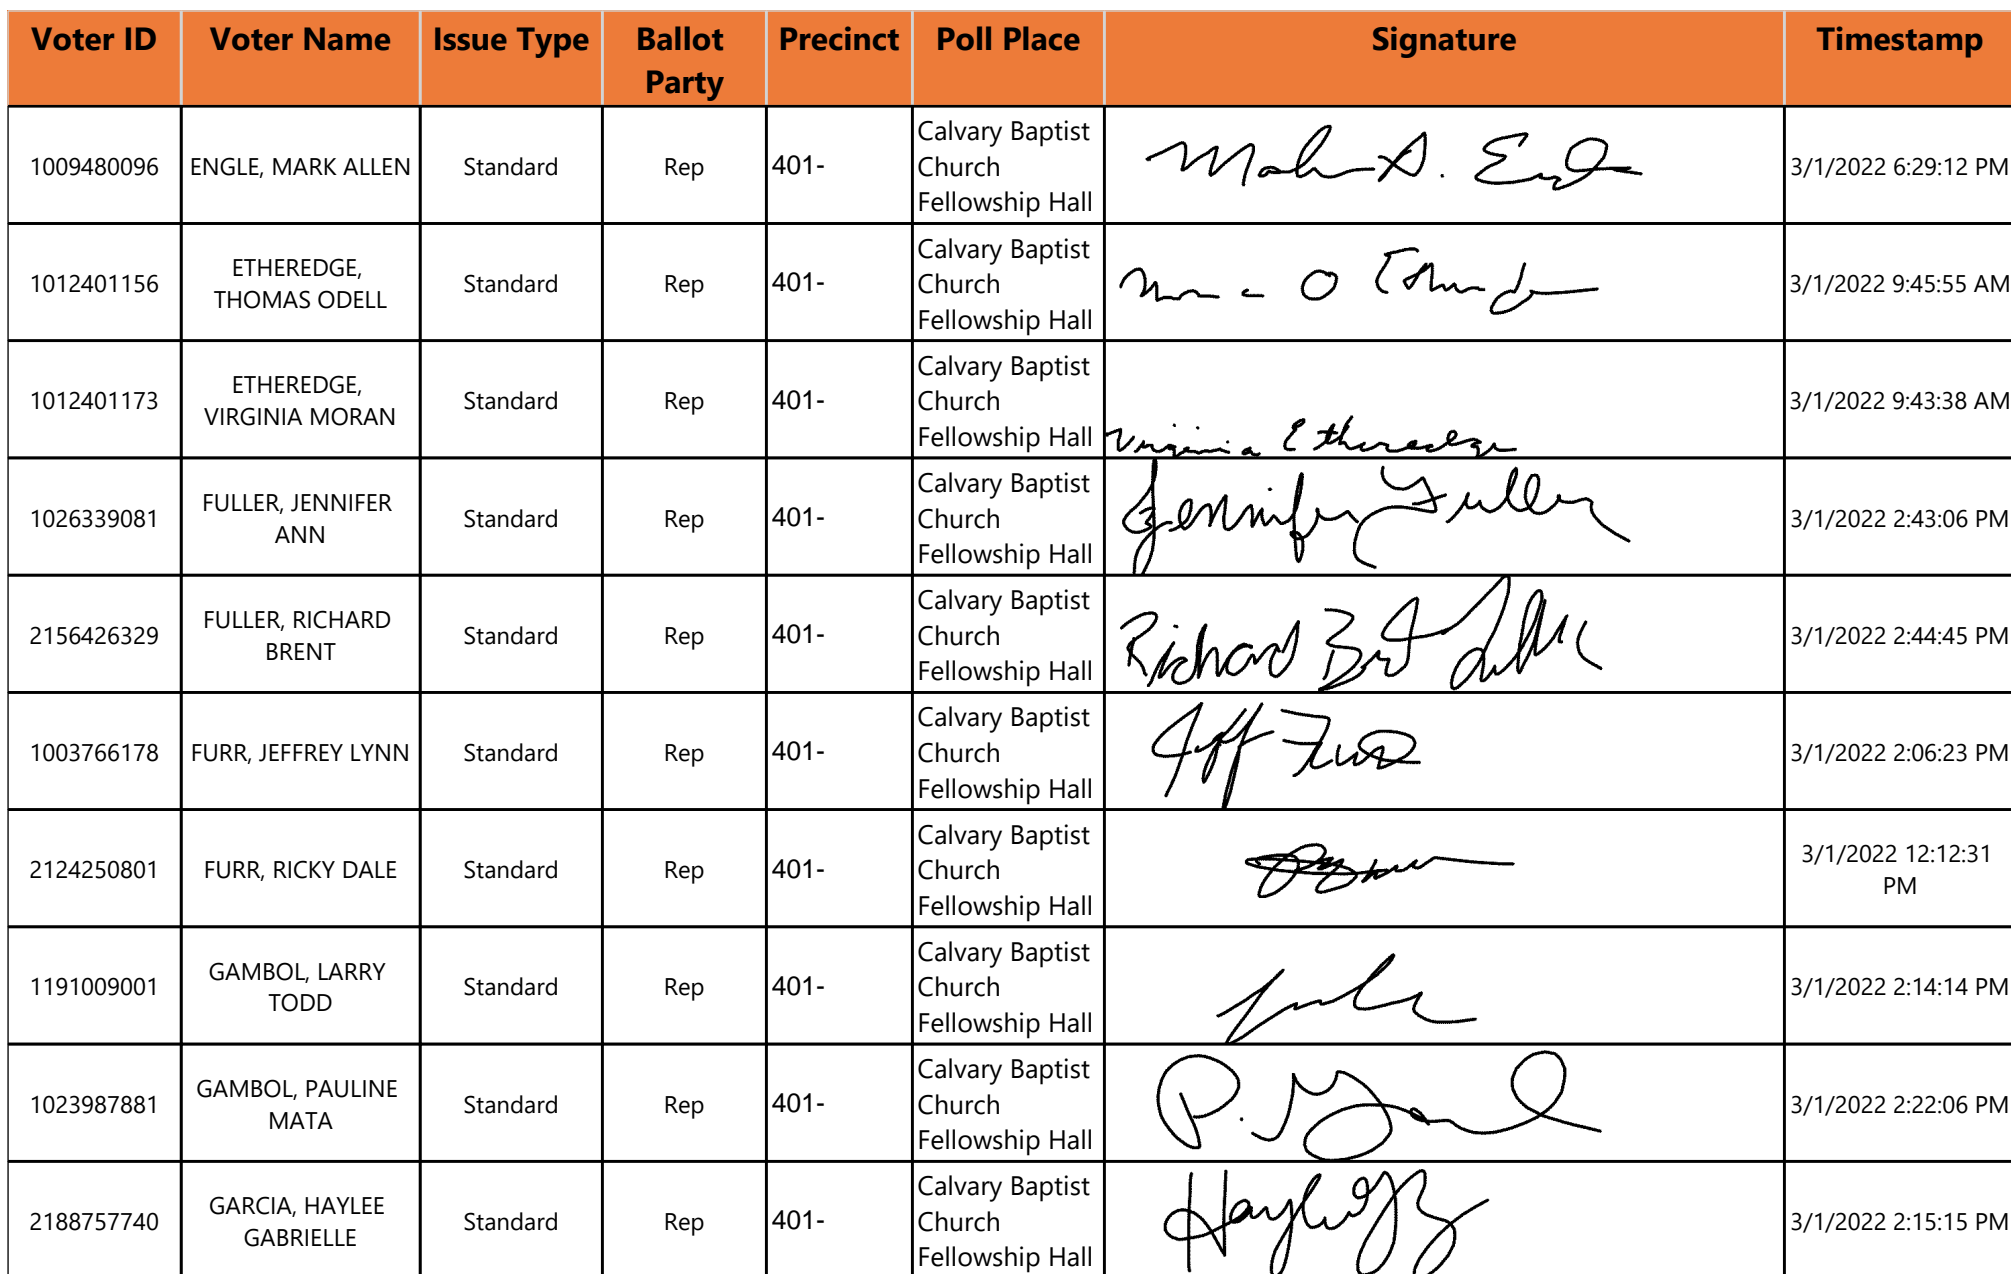 Voter ID Voter Name Issue Type Ballot Party Precinct Poll Place Signature Timestamp
1009480096 ENGLE, MARK ALLEN Standard Rep 401- Calvary Baptist Church Fellowship Hall Mark A. Engle 3/1/2022 6:29:12 PM
1012401156 ETHEREDGE, THOMAS ODELL Standard Rep 401- Calvary Baptist Church Fellowship Hall O 3/1/2022 9:45:55 AM
1012401173 ETHEREDGE, VIRGINIA MORAN Standard Rep 401- Calvary Baptist Church Fellowship Hall Virginia Etheredge 3/1/2022 9:43:38 AM
1026339081 FULLER, JENNIFER ANN Standard Rep 401- Calvary Baptist Church Fellowship Hall Jennifer Fuller 3/1/2022 2:43:06 PM
2156426329 FULLER, RICHARD BRENT Standard Rep 401- Calvary Baptist Church Fellowship Hall Richard Brent Fuller 3/1/2022 2:44:45 PM
1003766178 FURR, JEFFREY LYNN Standard Rep 401- Calvary Baptist Church Fellowship Hall Jeff Furr 3/1/2022 2:06:23 PM
2124250801 FURR, RICKY DALE Standard Rep 401- Calvary Baptist Church Fellowship Hall 3/1/2022 12:12:31 PM
1191009001 GAMBOL, LARRY TODD Standard Rep 401- Calvary Baptist Church Fellowship Hall 3/1/2022 2:14:14 PM
1023987881 GAMBOL, PAULINE MATA Standard Rep 401- Calvary Baptist Church Fellowship Hall P. 3/1/2022 2:22:06 PM
2188757740 GARCIA, HAYLEE GABRIELLE Standard Rep 401- Calvary Baptist Church Fellowship Hall Haylee 3/1/2022 2:15:15 PM